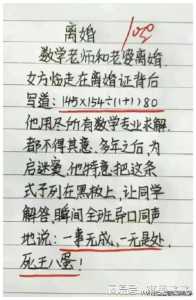 离婚
100
数学老师和老婆离婚,
女方临走在离婚证背后
写道: 1457×154÷(1+1)80
他用尽所有数学专业求解,
都不得其意。多年之后,为
启迷蒙,他特意把这条
式子列在黑板上,让同学
解答,瞬间全班异口同声
地说:一事无成,一无是处,
死王八蛋!